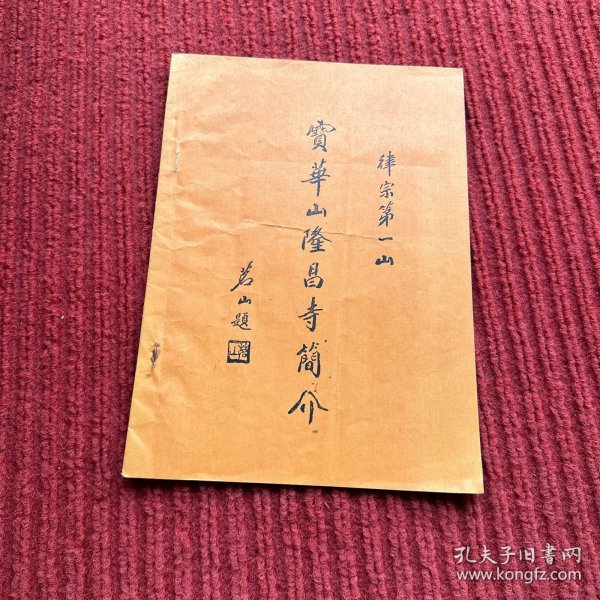 律宗第一山
寶華山隆昌寺簡介
茗山題
茗山
孔夫子旧书网
www.kongfz.com